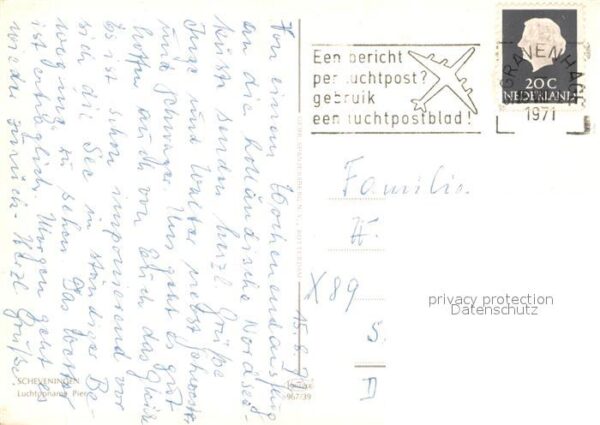 Von einem Wochenendausflug
an die holländische Nordsee-
küste senden herzl. Grüße
Inge und Walter nebst Schwester
und Schwager. Uns geht es gut
hoffen auch von Euch das gleiche
Es ist schon imponierend vor
sich die See in ständiger Be-
wegung zu sehen. Das Wetter
ist erträglich. Morgen geht es
wieder zurück. Herzl. Grüße.
15.8.71
SCHEVENINGEN
Luchtopname Pier
967/39
Een bericht
per luchtpost?
gebruik
een luchtpostblad!
GRAVENHAGE
1971
20 C
NEDERLAND
Familie
H
X 89
S.
D
privacy protection
Datenschutz